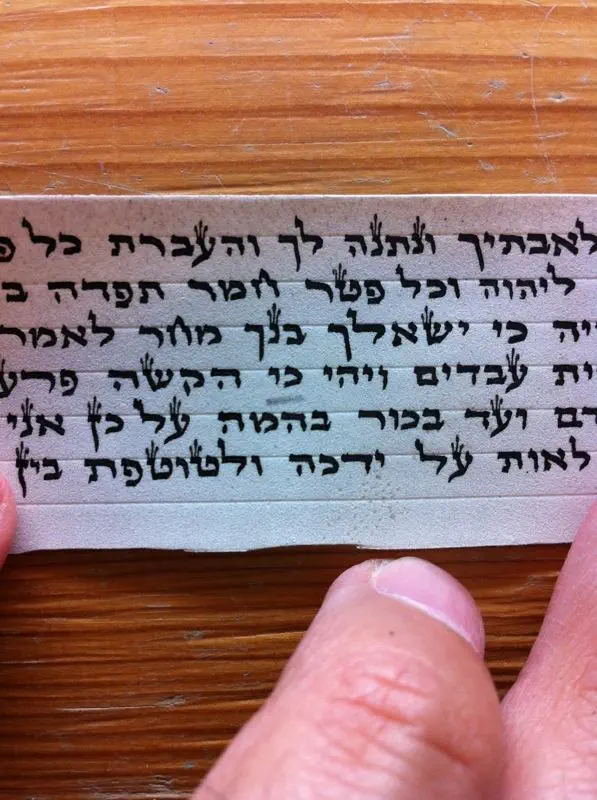 לאבתיך ונתנה לך והעברת כל פ
ליהוה וכל פטר חמר תפדה ב
יה כי ישאלך בנך מחר לאמר
ית עבדים ויהי כי הקשה פרע
דם ועד בכור בהמה על כן אני
לאות על ידכה ולטוטפת בין